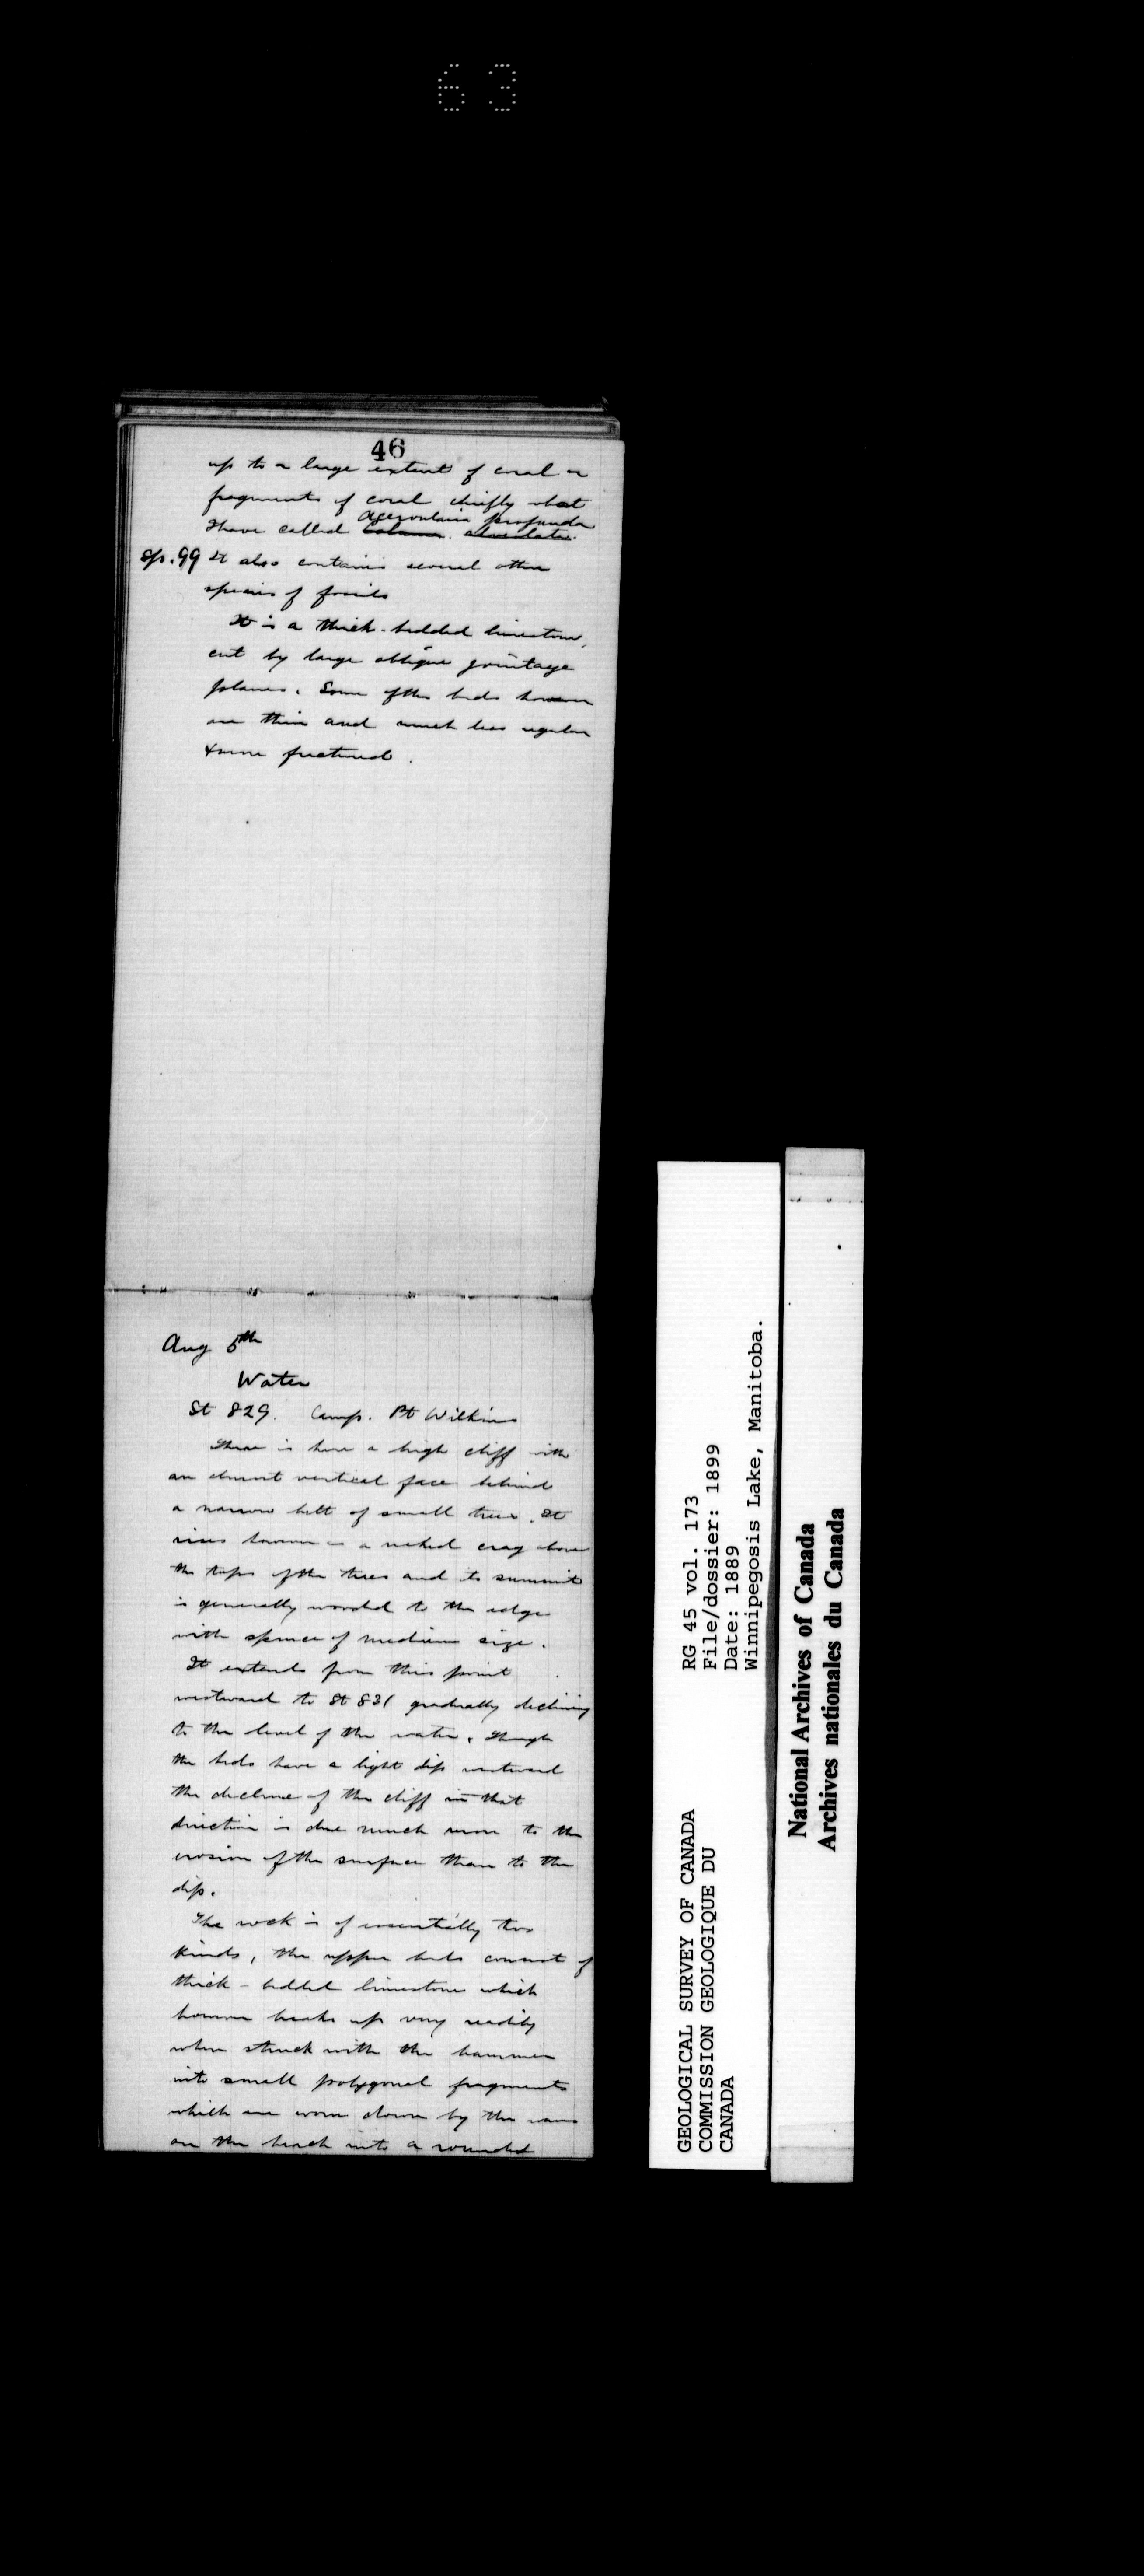 63
46
up to a large extent of coral or
fragments of coral chiefly what
Acervularia profunda
I have called Columna. alveolata.
Sp. 99 It also contains several other
species of fossils
It is a thick-bedded limestone,
cut by large oblique jointage
planes. Some of the beds however
are thin and much less regular
& more fractured.
Aug 5th
Water
St 829. Camp. Pt Wilkins
There is here a high cliff with
an almost vertical face behind
a narrow belt of small trees. It
rises however as a naked crag above
the tops of the trees and its summit
is generally wooded to the edge
with spruce of medium size.
It extends from this point
westward to St 831 gradually declining
to the level of the water. Though
the beds have a light dip westward
the decline of the cliff in that
direction is due much more to the
erosion of the surface than to the
dip.
The rock is of essentially two
kinds, the upper beds consist of
thick-bedded limestone which
however breaks up very readily
when struck with the hammer
into small polygonal fragments
which are worn down by the waves
on the beach into a rounded
GEOLOGICAL SURVEY OF CANADA
COMMISSION GEOLOGIQUE DU
CANADA
RG 45 vol. 173
File/dossier: 1899
Date: 1889
Winnipegosis Lake, Manitoba.
National Archives of Canada
Archives nationales du Canada